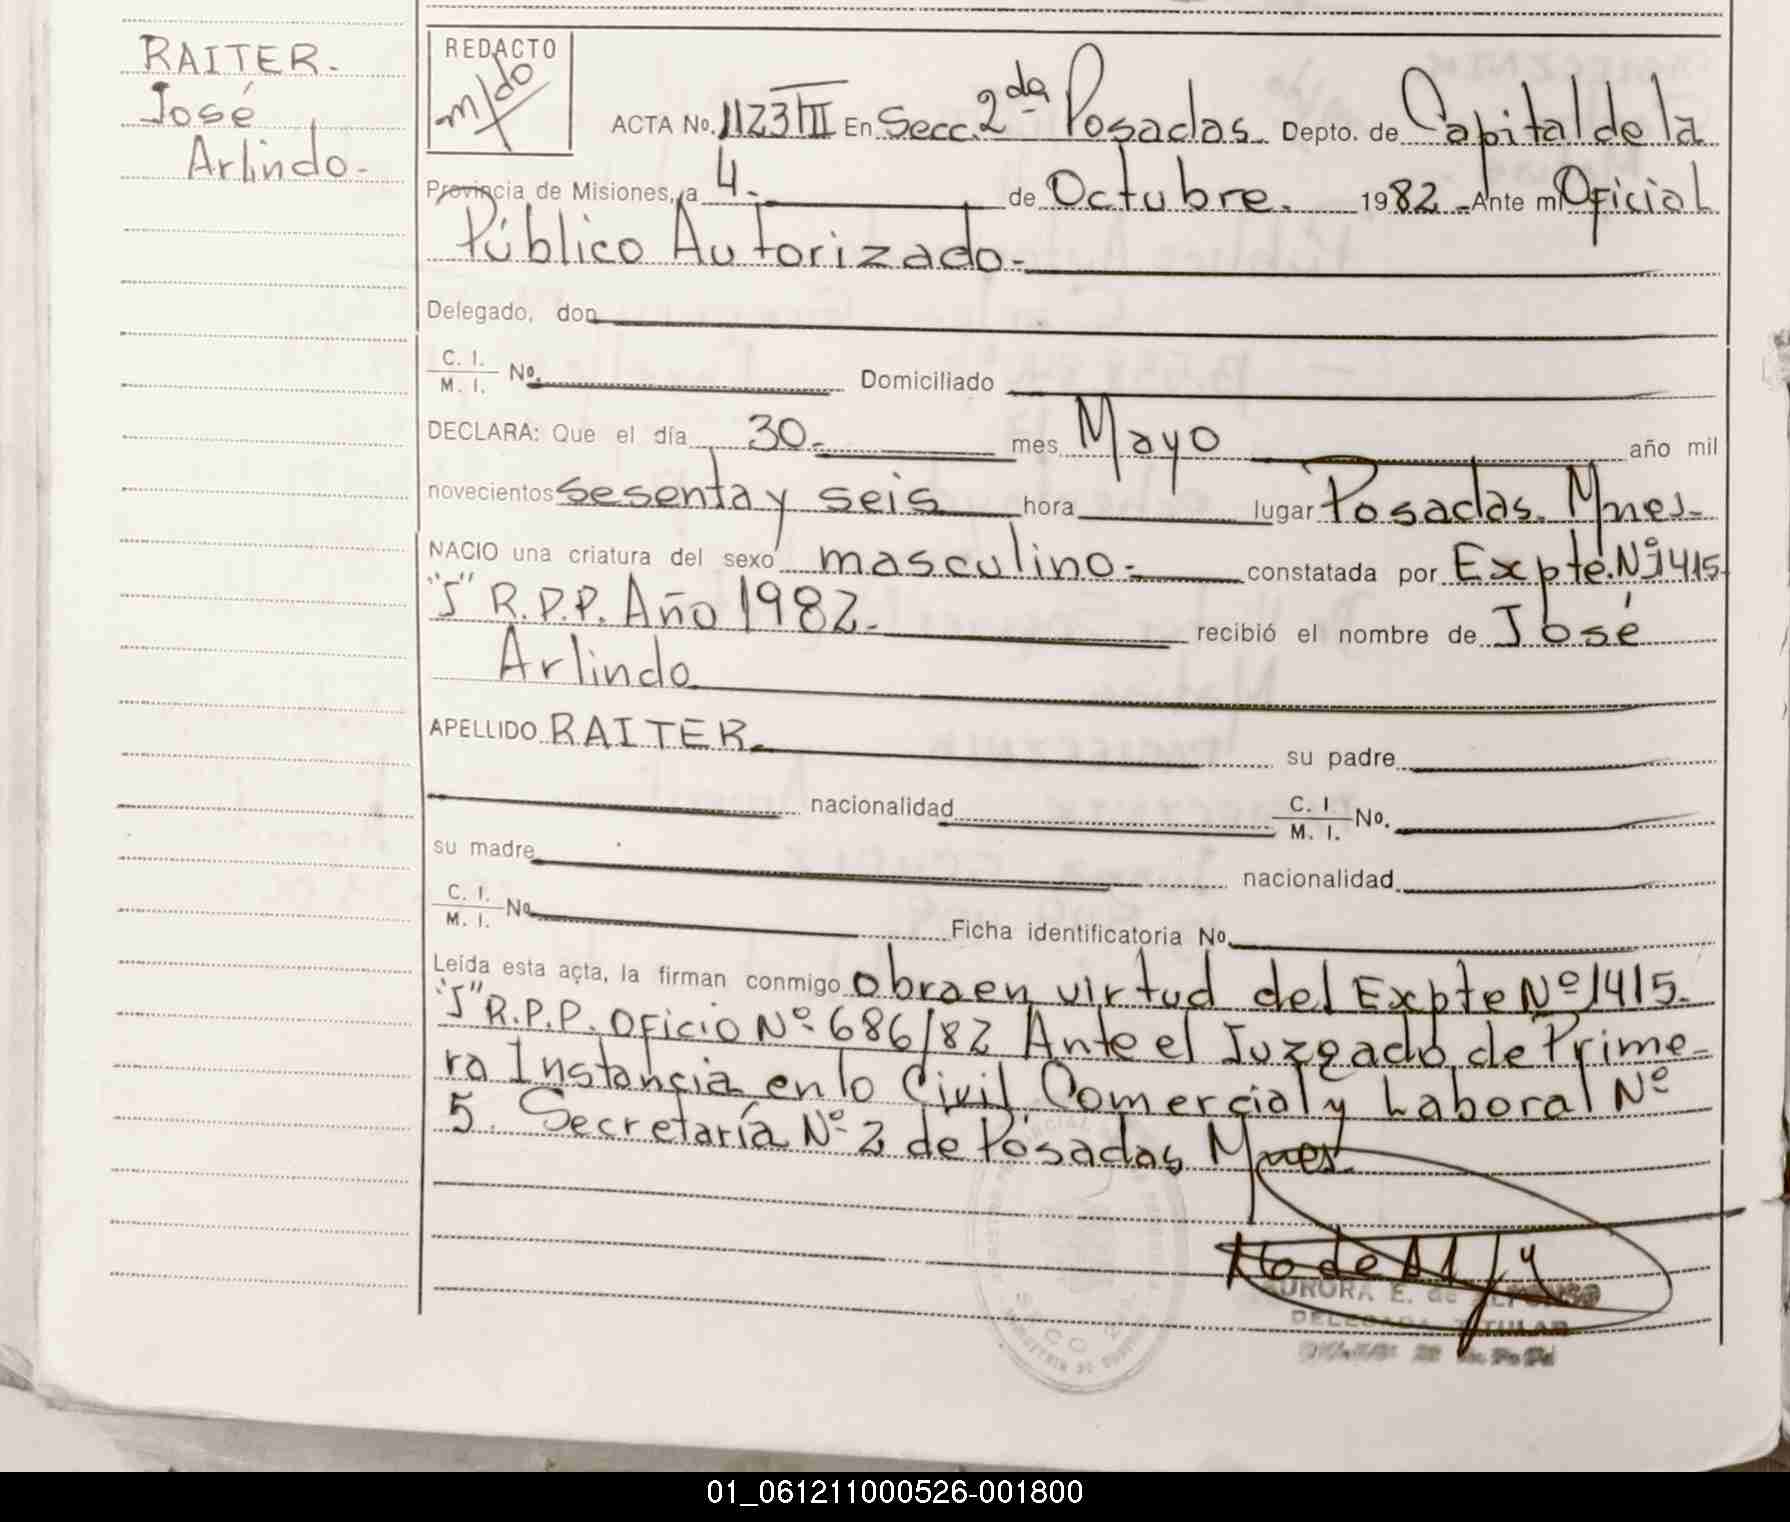 RAITER.
José
Arlindo-
REDACTO
ACTA No. 1123 III En Secc. 2da Posadas. Depto. de Capital de la
Provincia de Misiones, a 4.- de Octubre. 1982 - Ante mi Oficial
Público Autorizado.-
Delegado, don
C. I. / M. I. No. Domiciliado
DECLARA: Que el día 30.- mes Mayo año mil
novecientos sesenta y seis hora lugar Posadas. Mnes-
NACIO una criatura del sexo masculino.- constatada por Expte. Nº 1415
"J" R.P.P. Año 1982.- recibió el nombre de José
Arlindo
APELLIDO RAITER. su padre
nacionalidad C. I. / M. I. No.
su madre nacionalidad
C. I. / M. I. No Ficha identificatoria No.
Leída esta acta, la firman conmigo obra en virtud del Expte Nº 1415.
"J" R.P.P. Oficio Nº 686/82 Ante el Juzgado de Prime-
ra Instancia en lo Civil Comercial y Laboral Nº
5. Secretaría Nº 2 de Posadas Mnes
AURORA E. de ALFONSO
DELEGADA TITULAR
01_061211000526-001800